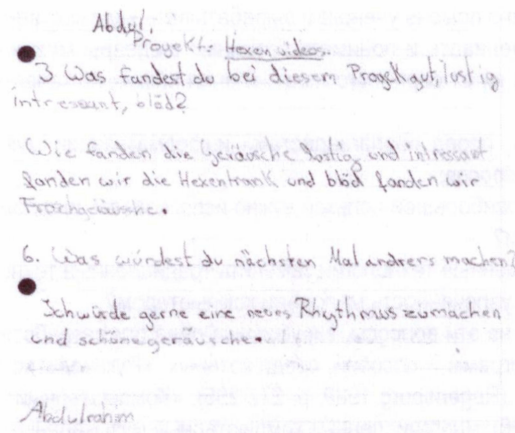 Abdul.
Projekt: Hexenvideos.
3. Was fandest du bei diesem Projekt gut, lustig
intressant, blöd?
Wie fanden die geräusche lustig und intressant
fanden wir die Hexentrank und blöd fanden wir
Froschgeräusche.
6. Was würdest du nächsten Mal anders machen?
Ich würde gerne eine neues Rhythmus zumachen
und schöne geräusche.
Abdulrahim